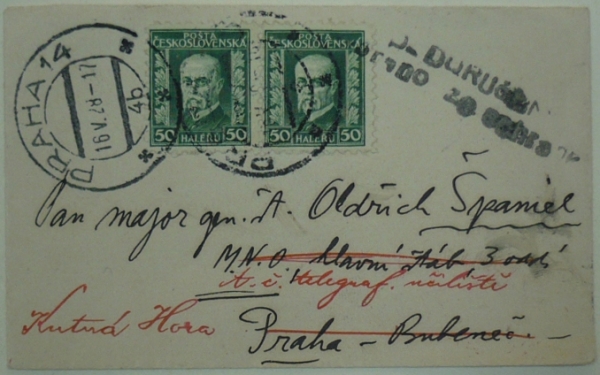 PRAHA 14
16.V.28-17
4b
POŠTA
ČESKOSLOVENSKÁ
50 HALÉŘŮ 50
POŠTA
ČESKOSLOVENSKÁ
50 HALÉŘŮ 50
Pan major gen. št. Oldřich Španiel
M.N.O. hlavní štáb, 3 odd
telegraf. učiliště
Kutná Hora
Praha - Bubeneč.